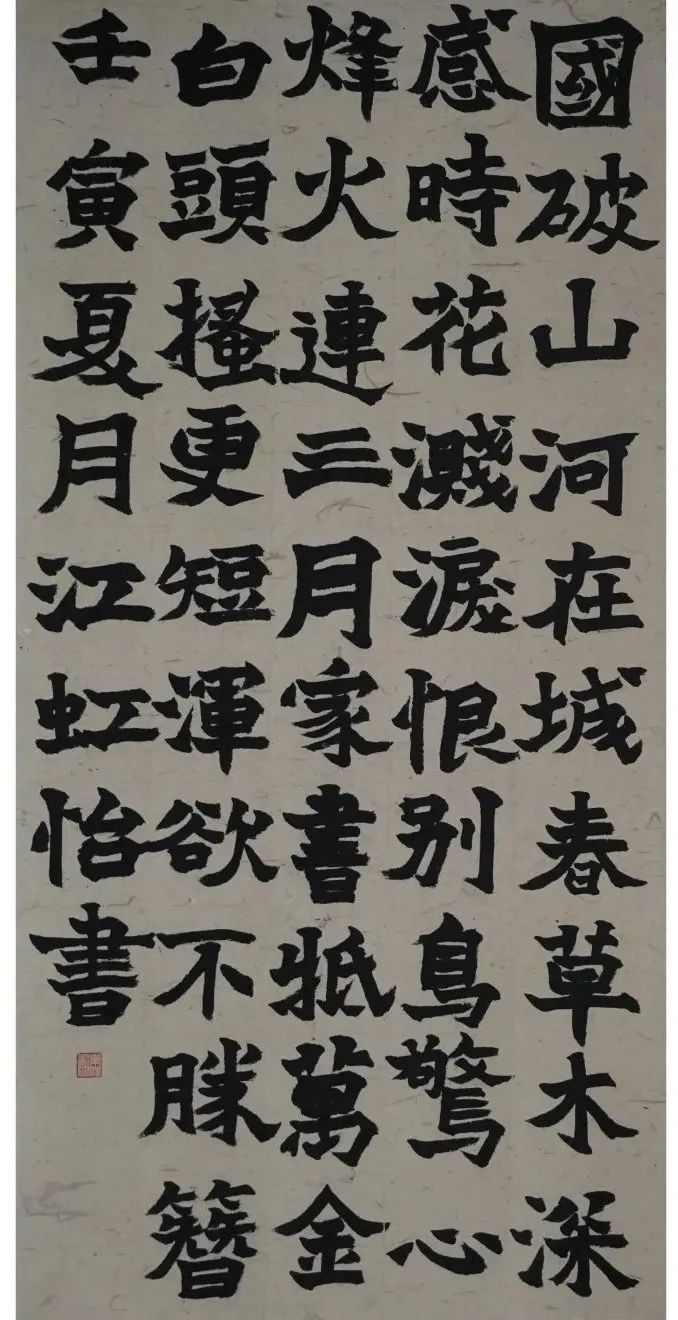 國破山河在城春草木深
感時花濺淚恨別鳥驚心
烽火連三月家書牴萬金
白頭搔更短渾欲不勝簪
壬寅夏月江虹怡書